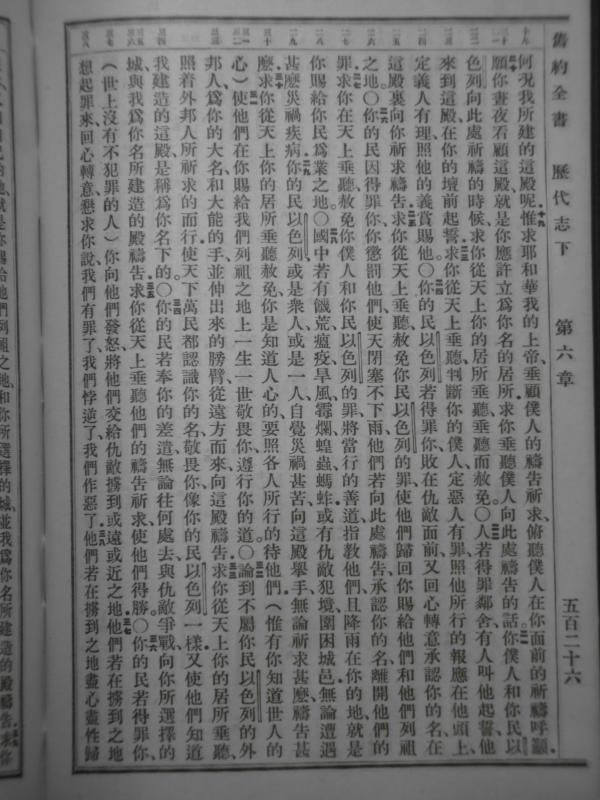 舊約全書 歷代志下 第六章 五百二十六
何況我所建的這殿呢惟求耶和華我的上帝垂顧僕人的禱告祈求俯聽僕人在你面前的祈禱呼籲、
願你晝夜看顧這殿就是你應許立爲你名的居所求你垂聽僕人向此處禱告的話你僕人和你民以
色列向此處祈禱的時候求你從天上你的居所垂聽垂聽而赦免〇人若得罪鄰舍有人叫他起誓他
來到這殿在你的壇前起誓求你從天上垂聽判斷你的僕人定惡人有罪照他所行的報應在他頭上
定義人有理照他的義賞賜他〇你的民以色列若得罪你敗在仇敵面前又回心轉意承認你的名在
這殿裏向你祈求禱告求你從天上垂聽赦免你民以色列的罪使他們歸回你賜給他們和他們列祖
之地〇你的民因得罪你你懲罰他們使天閉塞不下雨他們若向此處禱告承認你的名離開他們的
罪求你在天上垂聽赦免你僕人和你民以色列的罪將當行的善道指教他們且降雨在你的地就是
你賜給你民爲業之地〇國中若有饑荒瘟疫旱風霉爛蝗蟲螞蚱或有仇敵犯境圍困城邑無論遭遇
甚麽災禍疾病你的民以色列或是衆人或是一人自覺災禍甚苦向這殿舉手無論祈求甚麽禱告甚
麽求你從天上你的居所垂聽赦免你是知道人心的要照各人所行的待他們（惟有你知道世人的
心）使他們在你賜給我們列祖之地上一生一世敬畏你遵行你的道〇論到不屬你民以色列的外
邦人爲你的大名和大能的手並伸出來的膀臂從遠方而來向這殿禱告求你從天上你的居所垂聽
照着外邦人所祈求的而行使天下萬民都認識你的名敬畏你像你的民以色列一樣又使他們知道
我建造的這殿是稱爲你名下的〇你的民若奉你的差遣無論往何處去與仇敵爭戰向你所選擇的
城與我爲你名所建造的殿禱告求你從天上垂聽他們的禱告祈求使他們得勝〇你的民若得罪你
（世上沒有不犯罪的人）你向他們發怒將他們交給仇敵擄到或遠或近之地他們若在擄到之地
想起罪來回心轉意懇求你說我們有罪了我們悖逆了我們作惡了他們若在擄到之地盡心盡性歸
就是你賜給他們列祖之地和你所選擇的城並我爲你名所建造的殿禱告求你